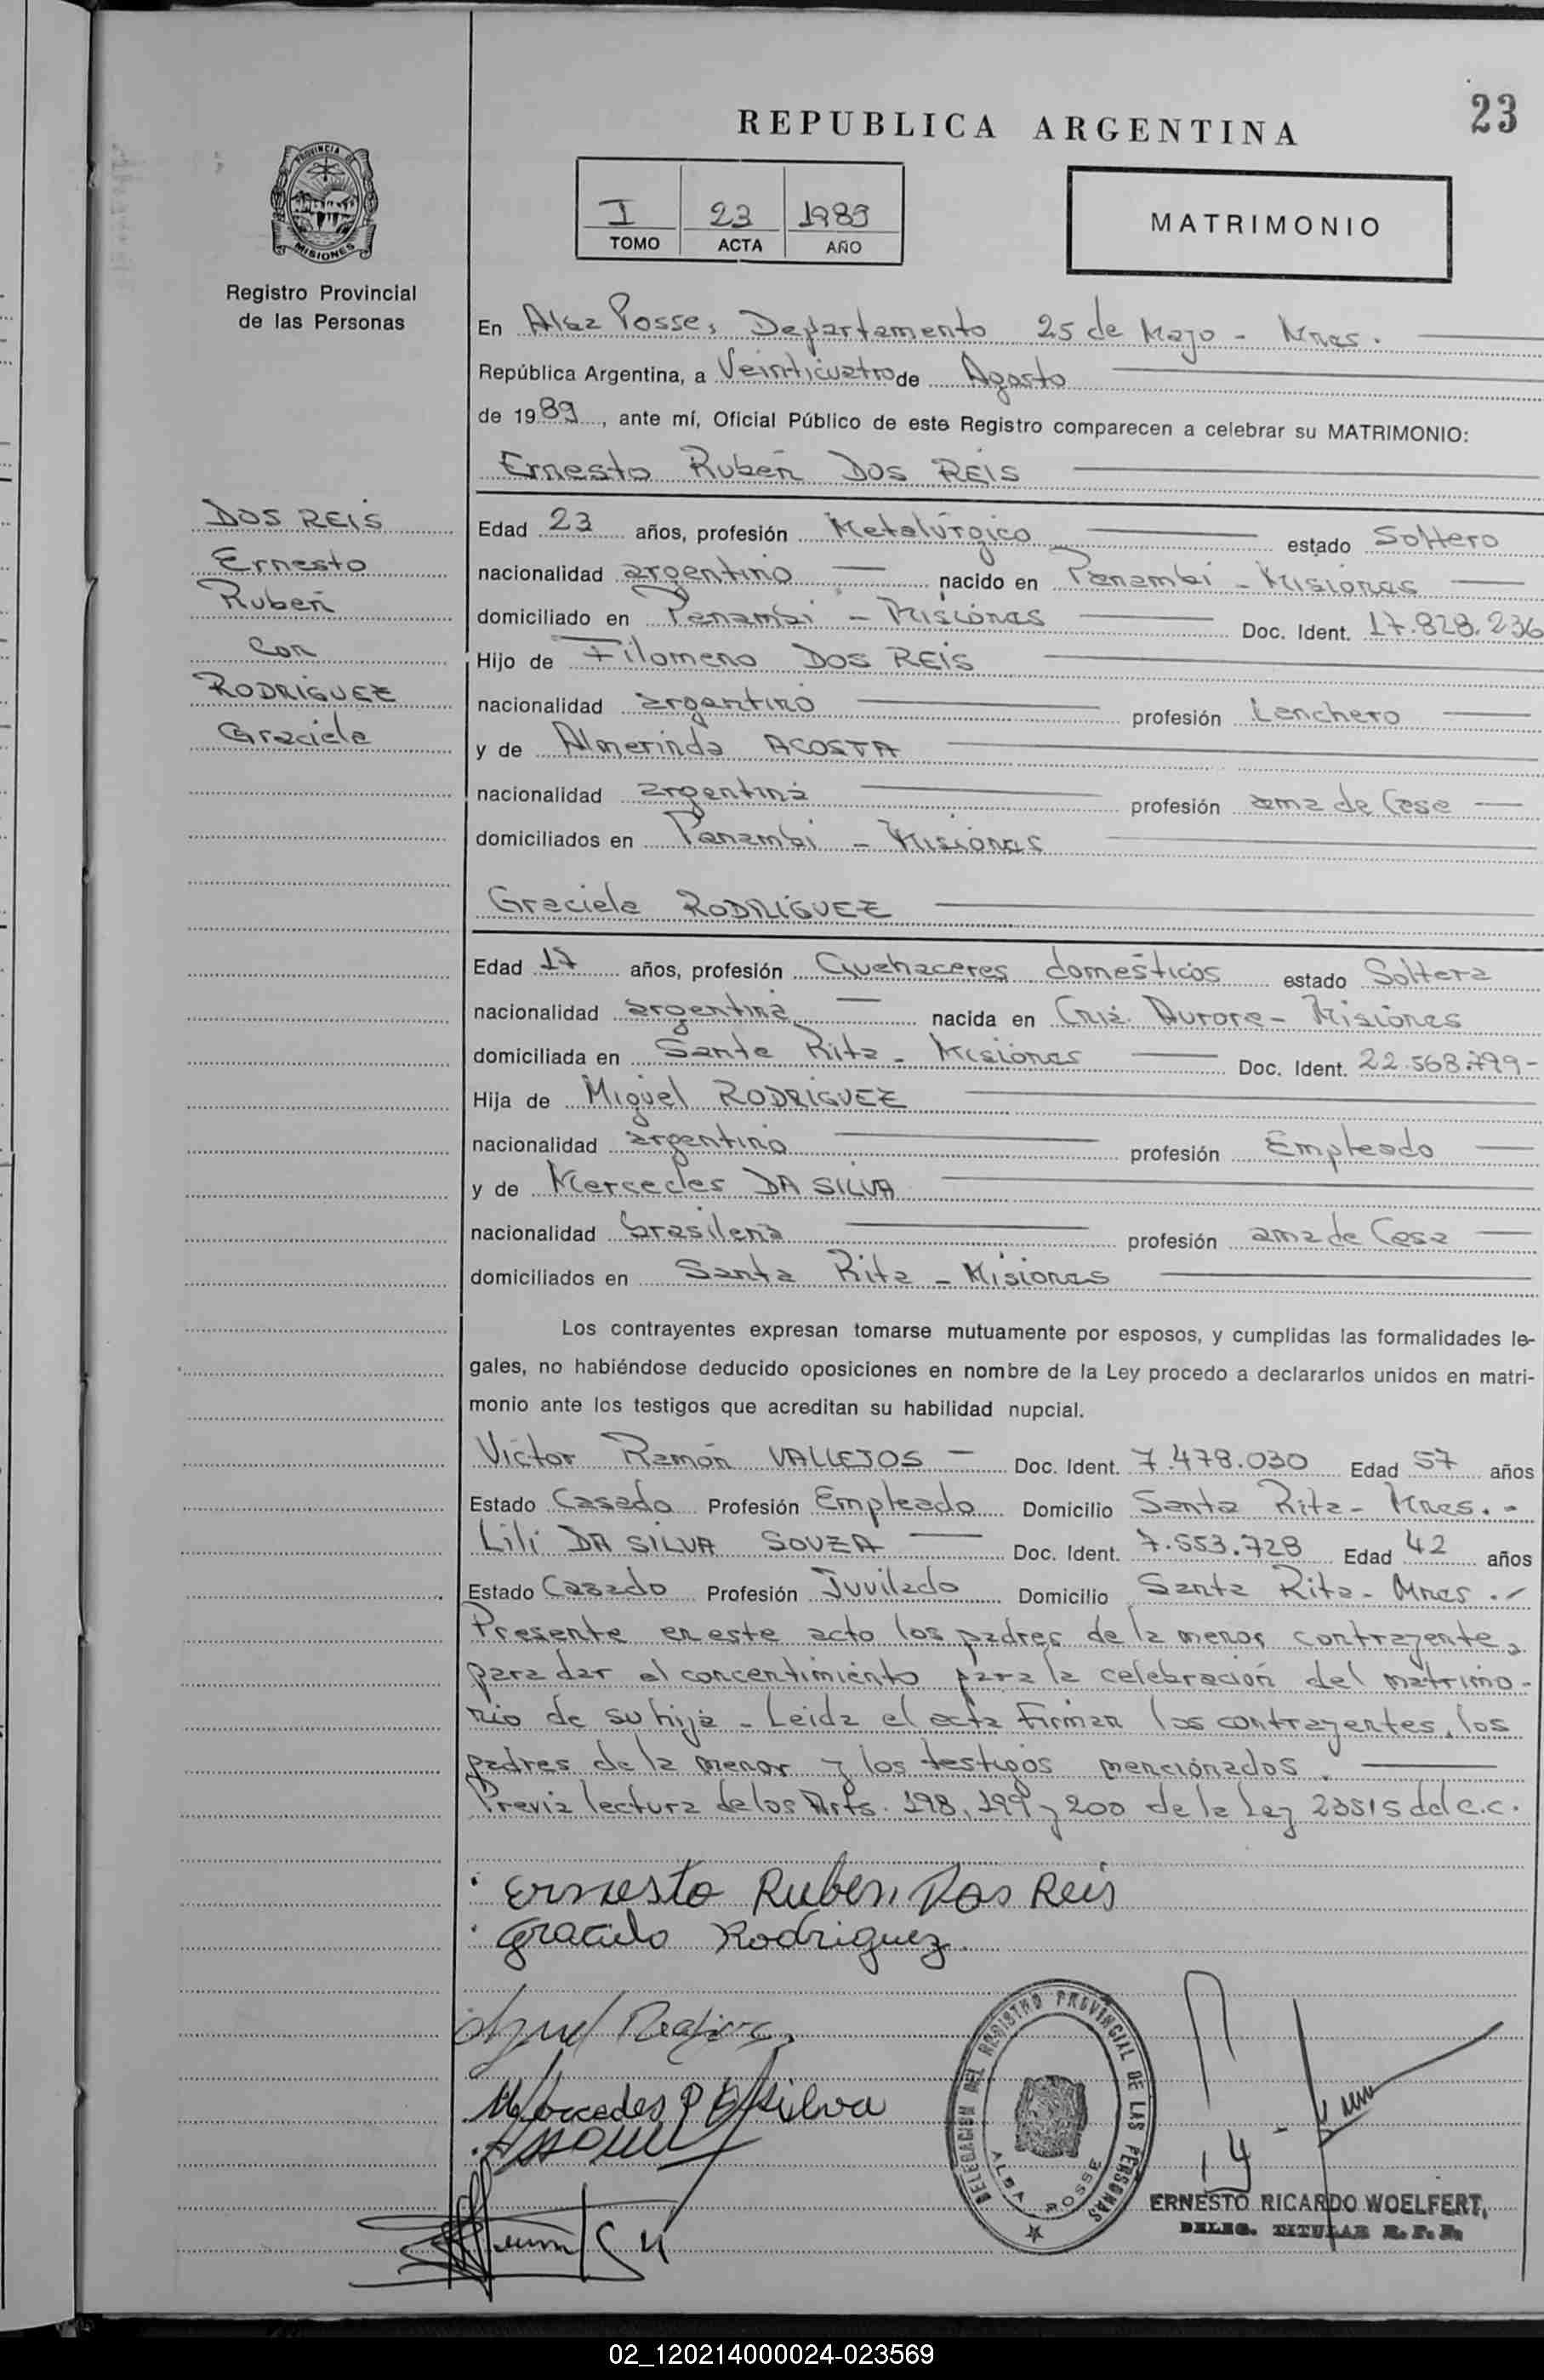 23
REPUBLICA ARGENTINA
PROVINCIA DE
MISIONES
Registro Provincial
de las Personas
I 23 1989
TOMO ACTA AÑO
MATRIMONIO
En Alba Posse, Departamento 25 de Mayo - Mnes.
República Argentina, a Veinticuatro de Agosto
de 1989, ante mí, Oficial Público de este Registro comparecen a celebrar su MATRIMONIO:
Ernesto Rubén DOS REIS
DOS REIS
Ernesto
Rubén
Con
RODRIGUEZ
Graciela
Edad 23 años, profesión Metalúrgico estado Soltero
nacionalidad argentino nacido en Panambí - Misiones
domiciliado en Panambí - Misiones Doc. Ident. 17.828.236
Hijo de Filomeno DOS REIS
nacionalidad argentino profesión Lanchero
y de Almerinda ACOSTA
nacionalidad argentina profesión ama de Casa
domiciliados en Panambí - Misiones
Graciela RODRIGUEZ
Edad 17 años, profesión Quehaceres domésticos estado Soltera
nacionalidad argentina nacida en Cnia. Aurora - Misiones
domiciliada en Santa Rita - Misiones Doc. Ident. 22.568.799-
Hija de Miguel RODRIGUEZ
nacionalidad argentino profesión Empleado
y de Mercedes DA SILVA
nacionalidad brasileña profesión ama de Casa
domiciliados en Santa Rita - Misiones
Los contrayentes expresan tomarse mutuamente por esposos, y cumplidas las formalidades le-
gales, no habiéndose deducido oposiciones en nombre de la Ley procedo a declararlos unidos en matri-
monio ante los testigos que acreditan su habilidad nupcial.
Víctor Ramón VALLEJOS - Doc. Ident. 7.478.030 Edad 57 años
Estado Casado Profesión Empleado Domicilio Santa Rita - Mnes. -
Lili DA SILVA SOUZA Doc. Ident. 7.553.728 Edad 42 años
Estado Casado Profesión Juvilado Domicilio Santa Rita - Mnes. -
Presente en este acto los padres de la menor contrayente,
para dar el concentimiento para la celebración del matrimo-
nio de su hija - Leida el acta firman los contrayentes, los
padres de la menor y los testigos mencionados.
Previa lectura de los Arts. 198, 199 y 200 de la Ley 23515 del C.C.
Ernesto Ruben Dos Reis
Graciela Rodriguez
Mercedes Da Silva
DELEGACION DEL REGISTRO PROVINCIAL DE LAS PERSONAS
ALBA POSSE
ERNESTO RICARDO WOELFERT,
DELEG. TITULAR R. P. P.
02_120214000024-023569